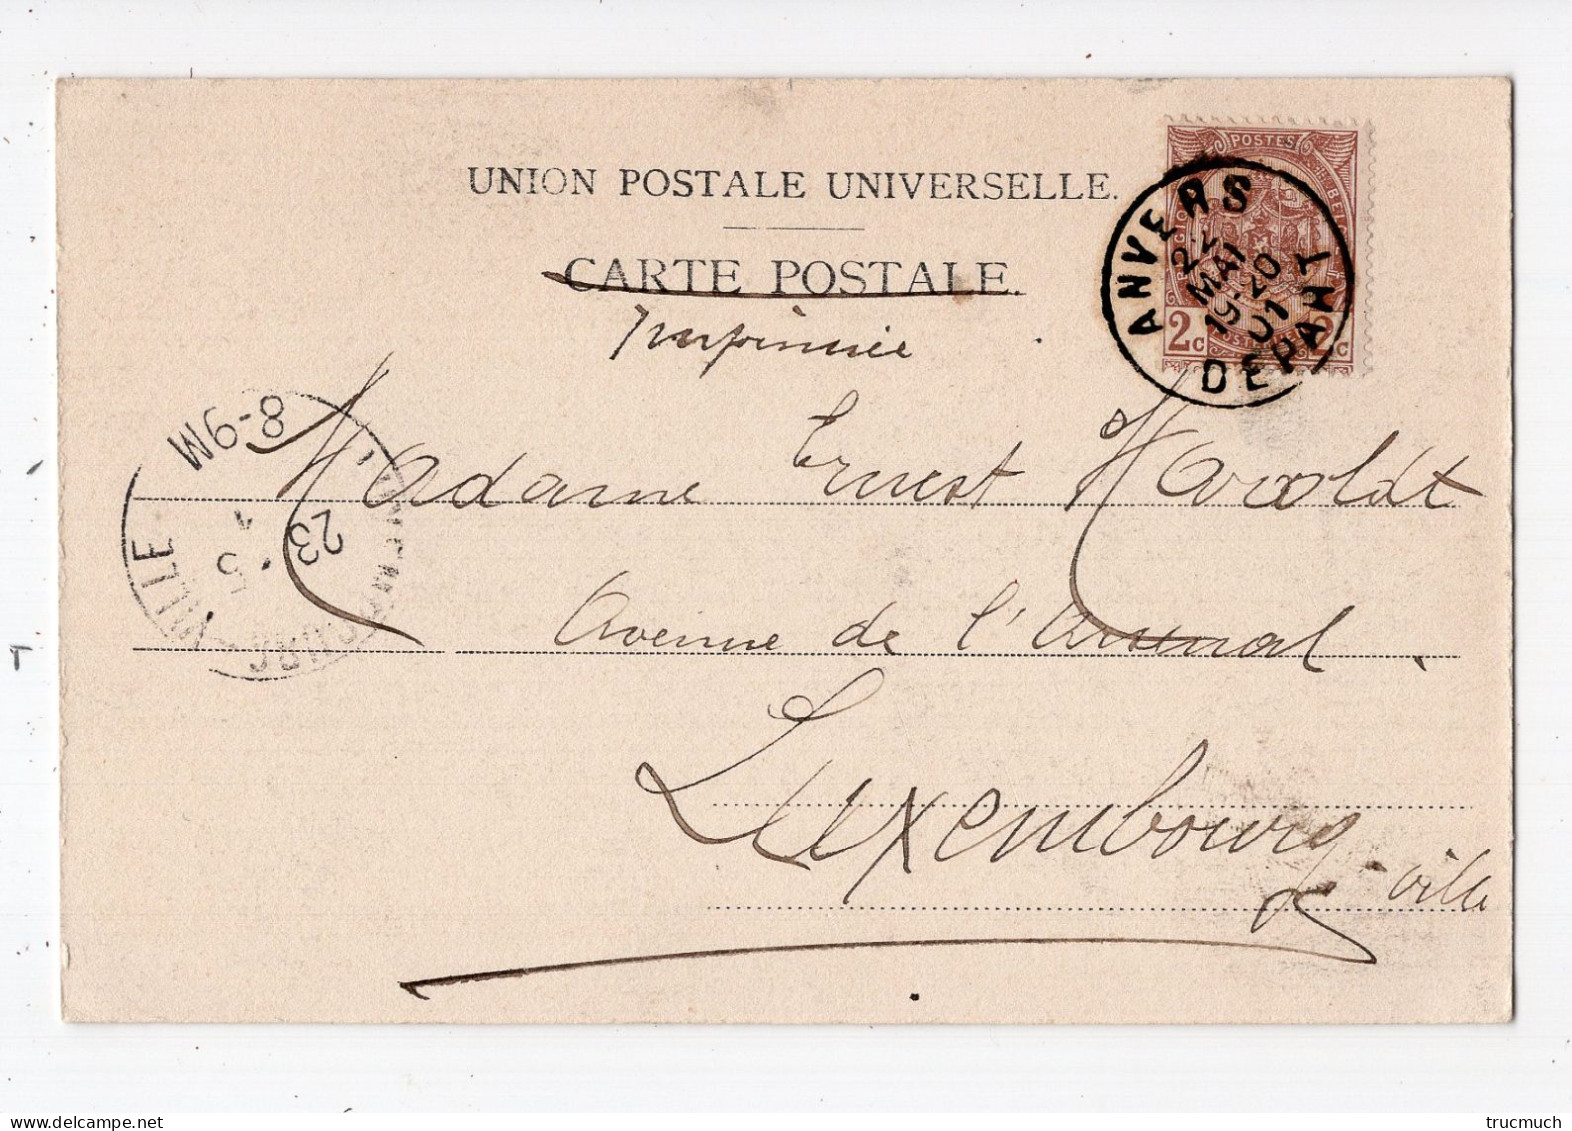 UNION POSTALE UNIVERSELLE.
CARTE POSTALE.
Imprimée
POSTES
2c 2c
ANVERS
MAI
19-20
01
DEPART
8-9M
23
5
VILLE
Madame Ernest
Avenue de l'Arsenal
Luxembourg
ville
delcampe.net
trucmuch